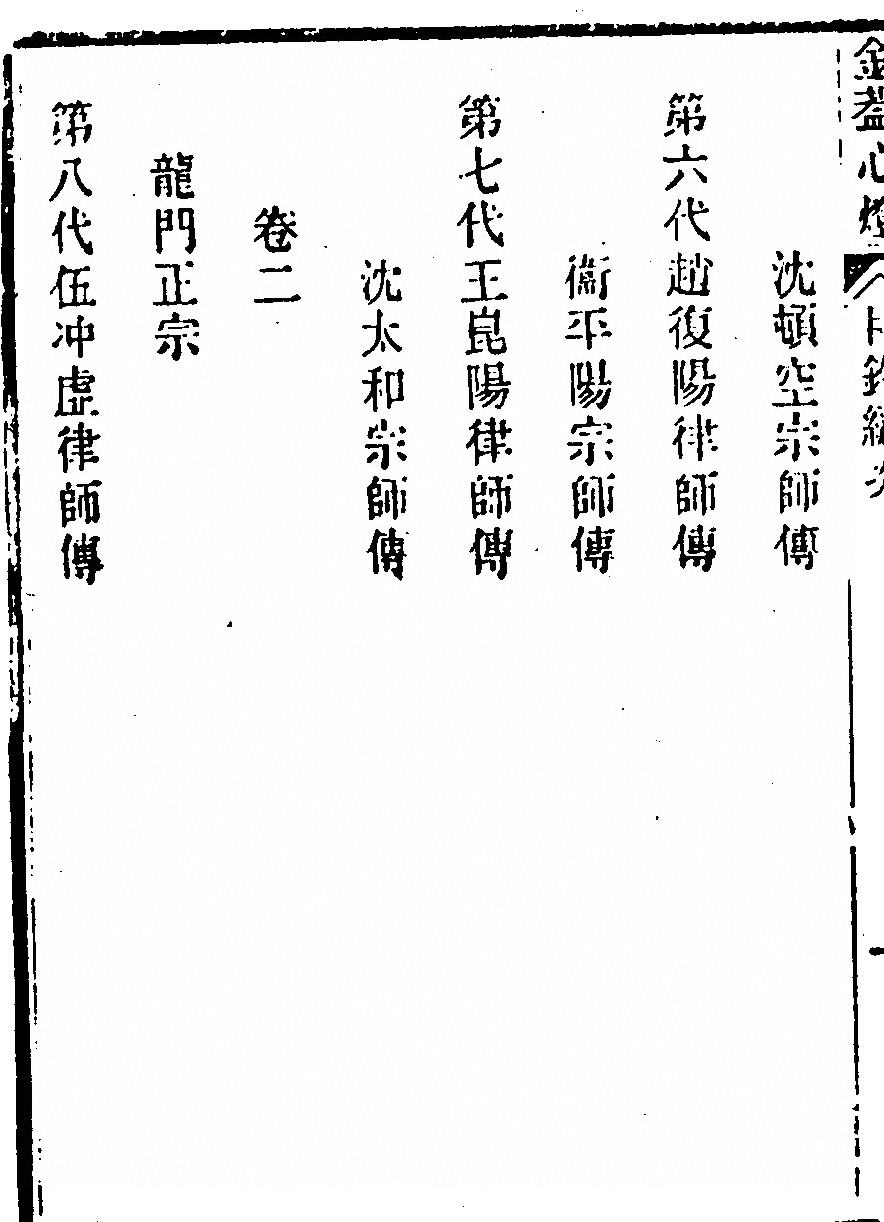 金蓋心燈
沈頓空宗師傳
第六代趙復陽律師傳
衞平陽宗師傳
第七代王崑陽律師傳
沈太和宗師傳
卷二
龍門正宗
第八代伍冲虛律師傳